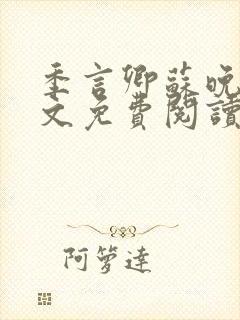 季言卿蘇晚
文免費閱讀
阿箩達